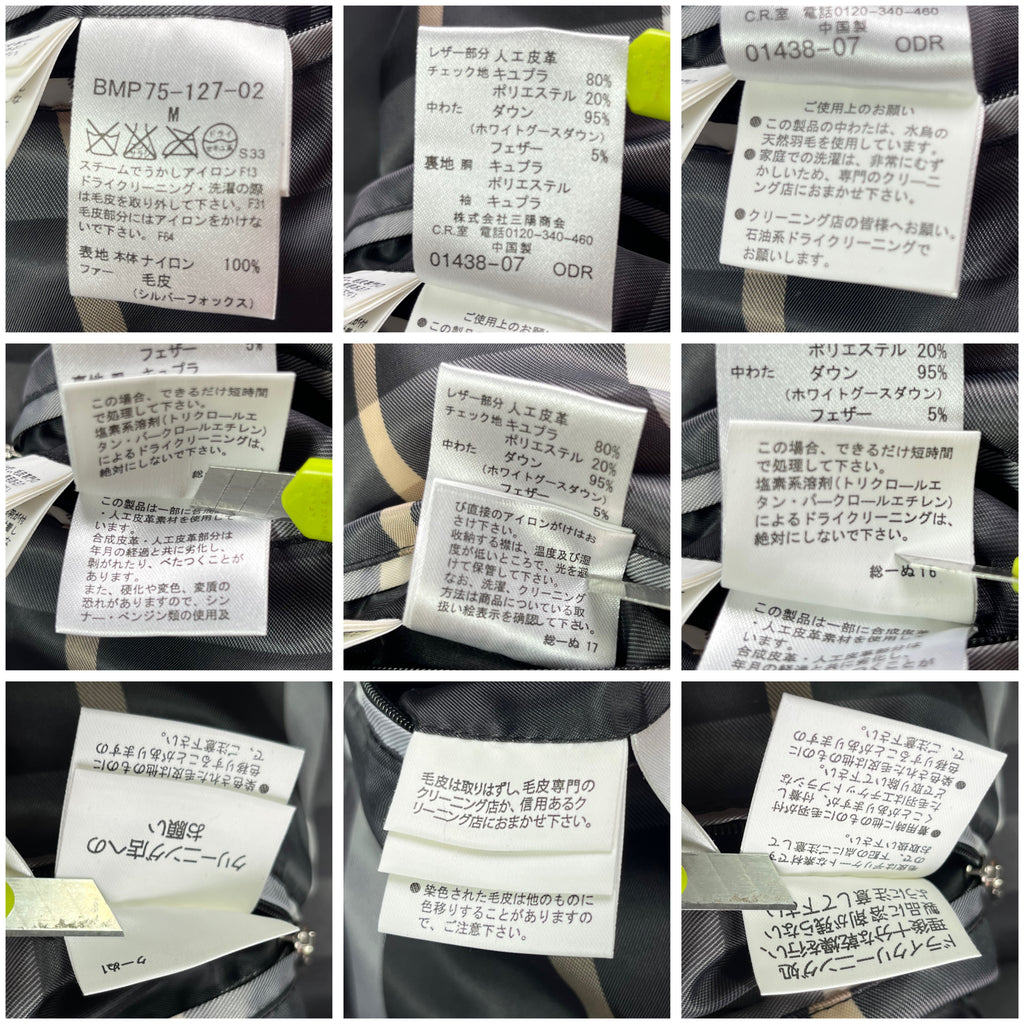 BMP75-127-02
M
ドライ
セキユ系
S33
スチームでうかしアイロン F13
ドライクリーニング・洗濯の際
は毛皮を取り外して下さい。F31
毛皮部分にはアイロンをかけな
いで下さい。F64
表地 本体 ナイロン 100%
ファー 毛皮
(シルバーフォックス)
レザー部分 人工皮革
チェック地 キュプラ 80%
ポリエステル 20%
中わた ダウン 95%
(ホワイトグースダウン)
フェザー 5%
裏地 胴 キュプラ
ポリエステル
袖 キュプラ
株式会社三陽商会
C.R.室 電話0120-340-460
中国製
01438-07 ODR
ご使用上のお願い
C.R.室 電話0120-340-460
中国製
01438-07 ODR
ご使用上のお願い
●この製品の中わたは、水鳥の
天然羽毛を使用しています。
●家庭での洗濯は、非常にむず
かしいため、専門のクリーニ
ング店におまかせ下さい。
●クリーニング店の皆様へお願い。
石油系ドライクリーニングで
お願いします。
フェザー 5%
キュプラ
この場合、できるだけ短時間
で処理して下さい。
塩素系溶剤(トリクロールエ
タン・パークロールエチレン)
によるドライクリーニングは、
絶対にしないで下さい。
総一
この製品は一部に合成皮革
・人工皮革素材を使用して
合成皮革・人工皮革部分は
年月の経過と共に劣化し、
剥がれたり、べたつくことが
あります。
また、硬化や変色、変質の
恐れがありますので、シン
ナー・ベンジン類の使用及
レザー部分 人工皮革
チェック地 キュプラ 80%
ポリエステル 20%
中わた ダウン 95%
(ホワイトグースダウン)
フェザー 5%
び直接のアイロンがけはお
さけ下さい。
収納する襟は、温度及び湿
度が低いところで、光を避
けて保管して下さい。
なお、洗濯、クリーニング
方法は商品についている取
扱い絵表示を確認して下さい。
総一ぬ 17
ポリエステル 20%
中わた ダウン 95%
(ホワイトグースダウン)
フェザー 5%
この場合、できるだけ短時間
で処理して下さい。
塩素系溶剤(トリクロールエ
タン・パークロールエチレン)
によるドライクリーニングは、
絶対にしないで下さい。
総一ぬ 16
この製品は一部に合成皮革
・人工皮革素材を使用して
います。
合成皮革・人工皮革部分は
年月の経過と共に劣化し、
●染色された毛皮は他のものに
色移りすることがありますの
で、ご注意下さい。
クリーニング店への
お願い
けーぬ1
毛皮は取りはずし、毛皮専門の
クリーニング店か、信用あるク
リーニング店におまかせ下さい。
●染色された毛皮は他のものに
色移りすることがありますの
で、ご注意下さい。
毛皮はデリケートな素材です
ので、下記の点に注意して
お取扱い下さい。
●着用時に他のものに毛羽が付
くことがありますが、付着し
た毛羽はエチケットブラシな
どで取り除いて下さい。
●染色された毛皮は他のものに
色移りすることがありますの
で、ご注意下さい。
ドライクリーニング処
理後十分な乾燥を行い、
製品に溶剤が残らない
ように注意して下さい